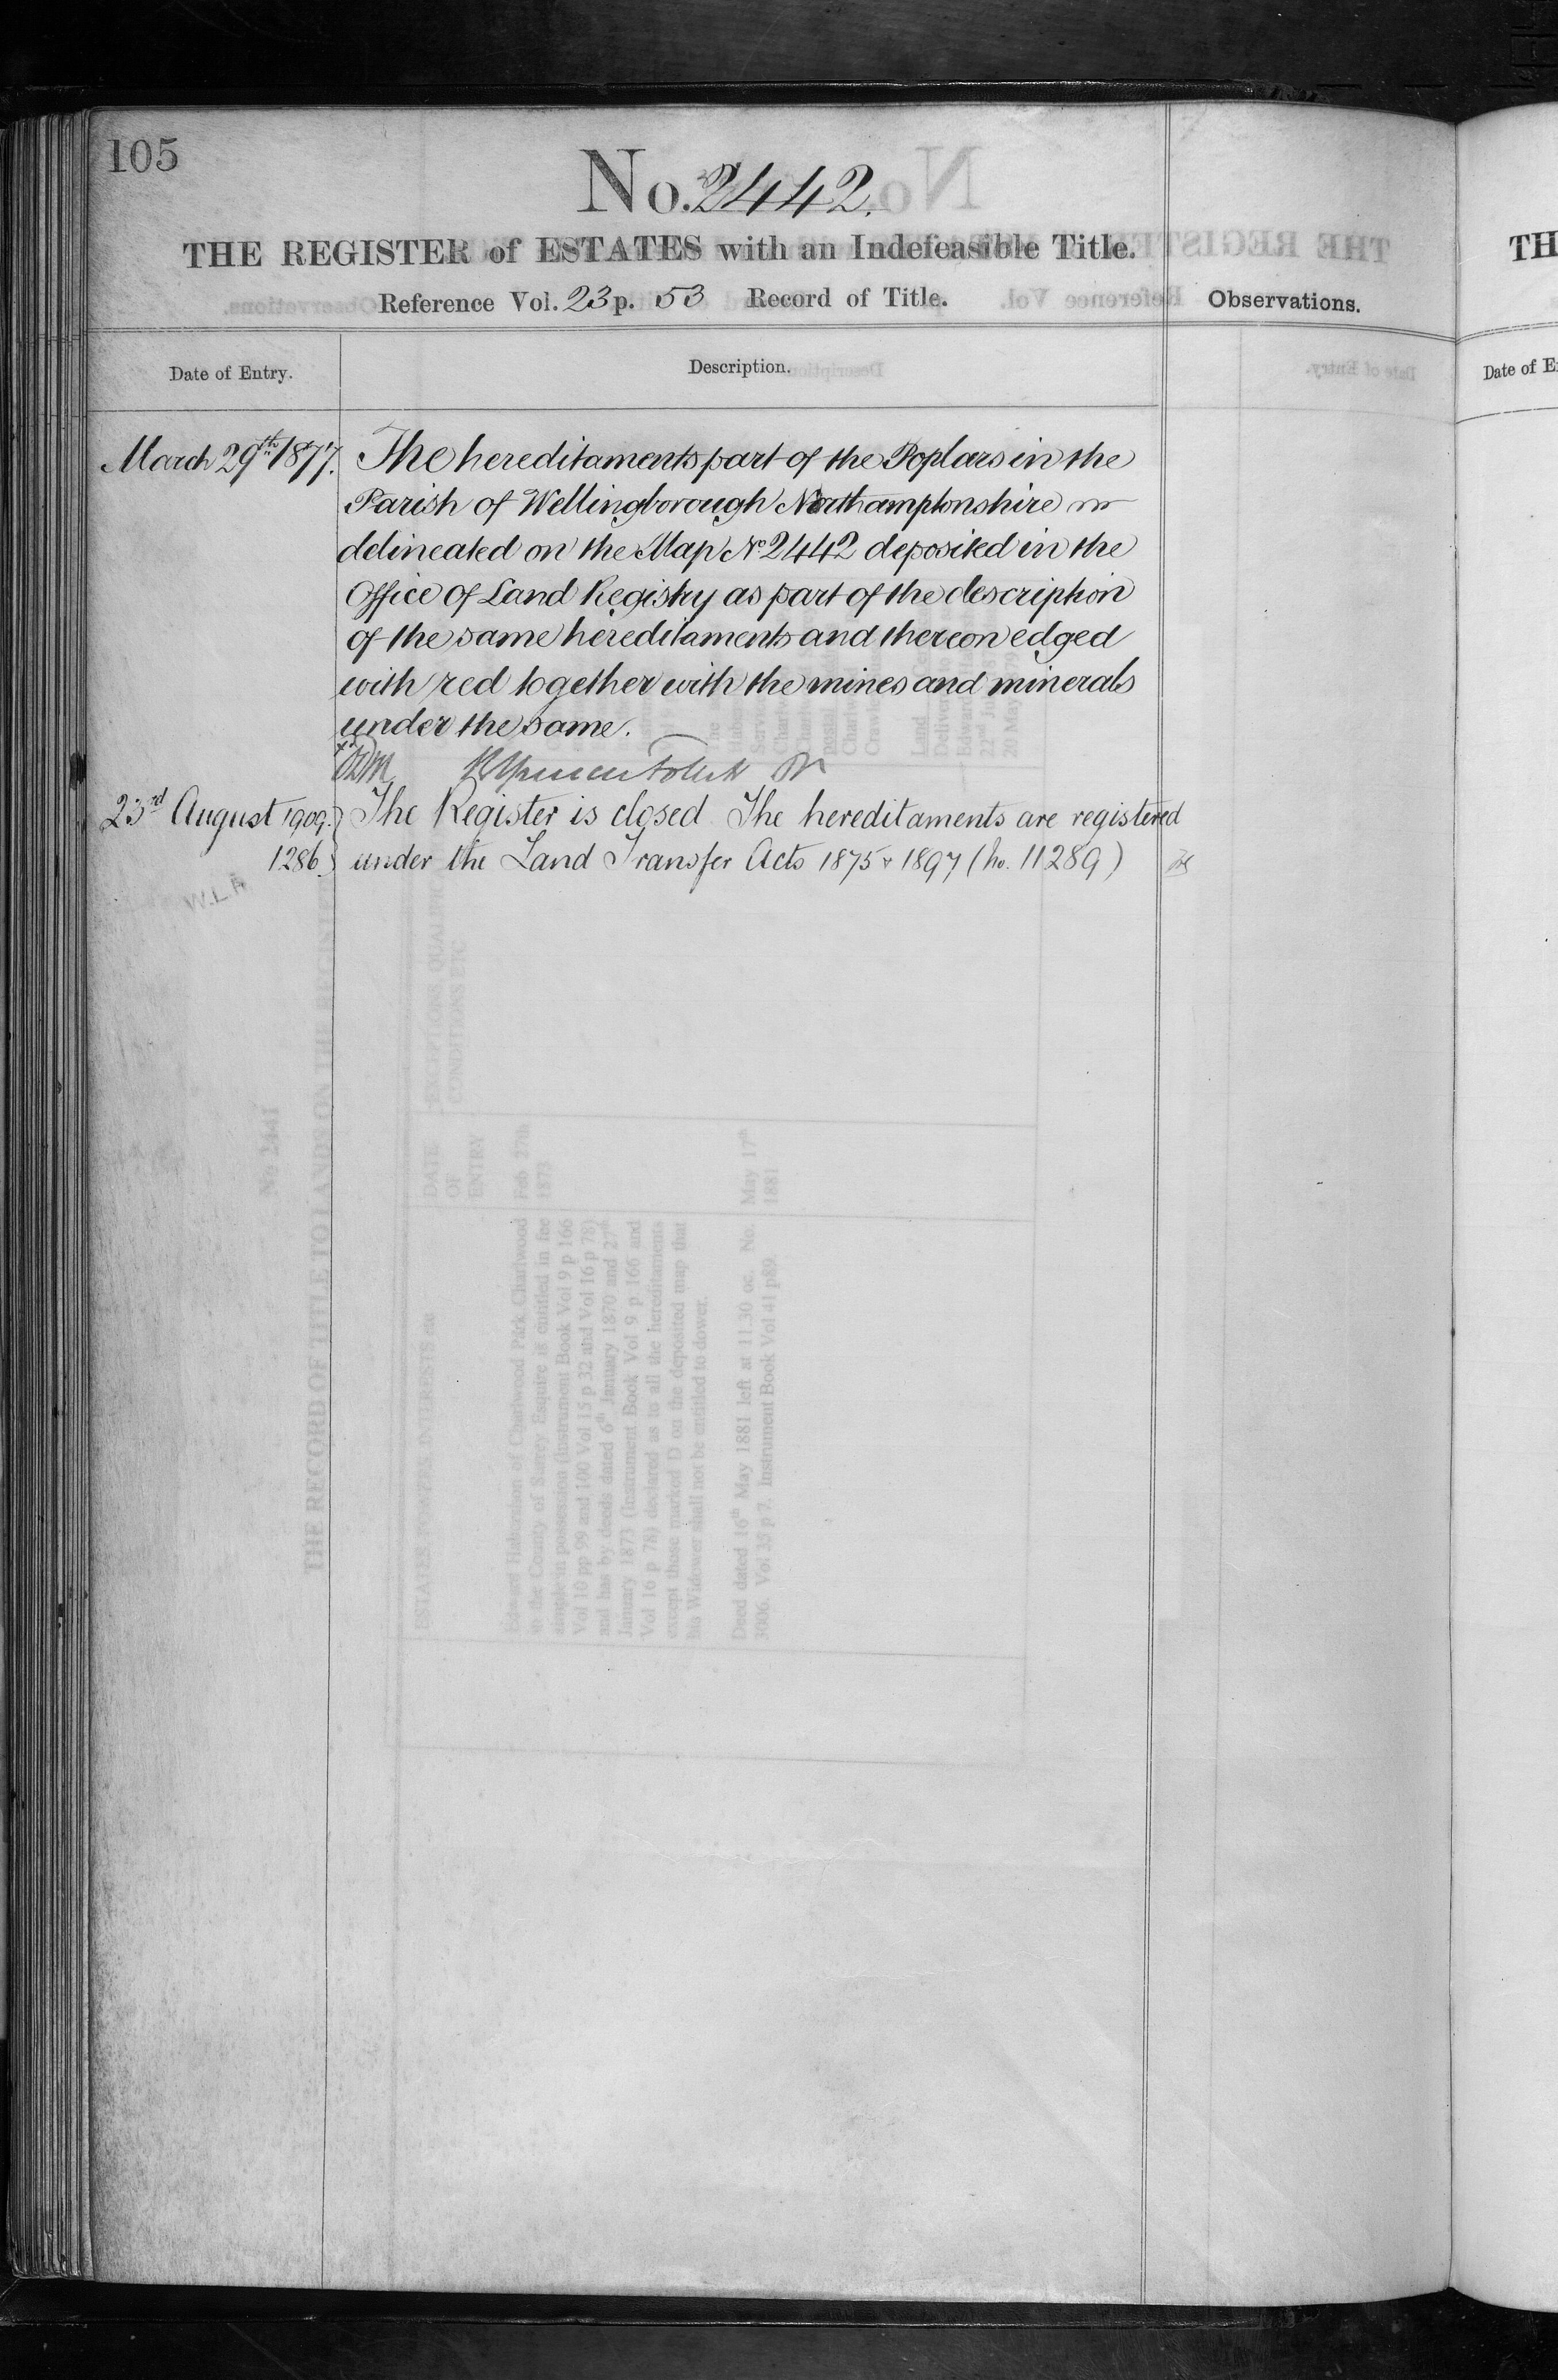 105
No. 2442.
THE REGISTER of ESTATES with an Indefeasible Title.
Reference Vol. 23 p. 53 Record of Title.
Observations.
Date of Entry.
Description.
March 29th 1877.
The hereditaments part of the Poplars in the
Parish of Wellingborough Northamptonshire
delineated on the Map No 2442 deposited in the
Office of Land Registry as part of the description
of the same hereditaments and thereon edged
with red together with the mines and minerals
under the same.
23rd August 1909.
1286.
The Register is closed The hereditaments are registered
under the Land Transfer Acts 1875 & 1897 (No. 11289)
W.L.R
TH
Date of E
No 2441
THE RECORD OF TITLE TO LAND ON THE
ESTATES POWERS INTERESTS etc
DATE
OF
ENTRY
EXCEPTIONS
CONDITIONS ETC
Feb 27th
1873
in the County of Surrey Esquire is entitled in fee
simple in possession (Instrument Book Vol 9 p 166
Vol 10 pp 99 and 100 Vol 15 p 32 and Vol 16 p 78)
and has by deeds dated 6th January 1870 and 27th
January 1873 (Instrument Book Vol 9 p 166 and
Vol 16 p 78) declared as to all the hereditaments
except those marked D on the deposited map that
his Widower shall not be entitled to dower.
May 17th
1881
Deed dated 16th May 1881 left at 11.30 oc. No.
3006. Vol 35 p 7. Instrument Book Vol 41 p89.